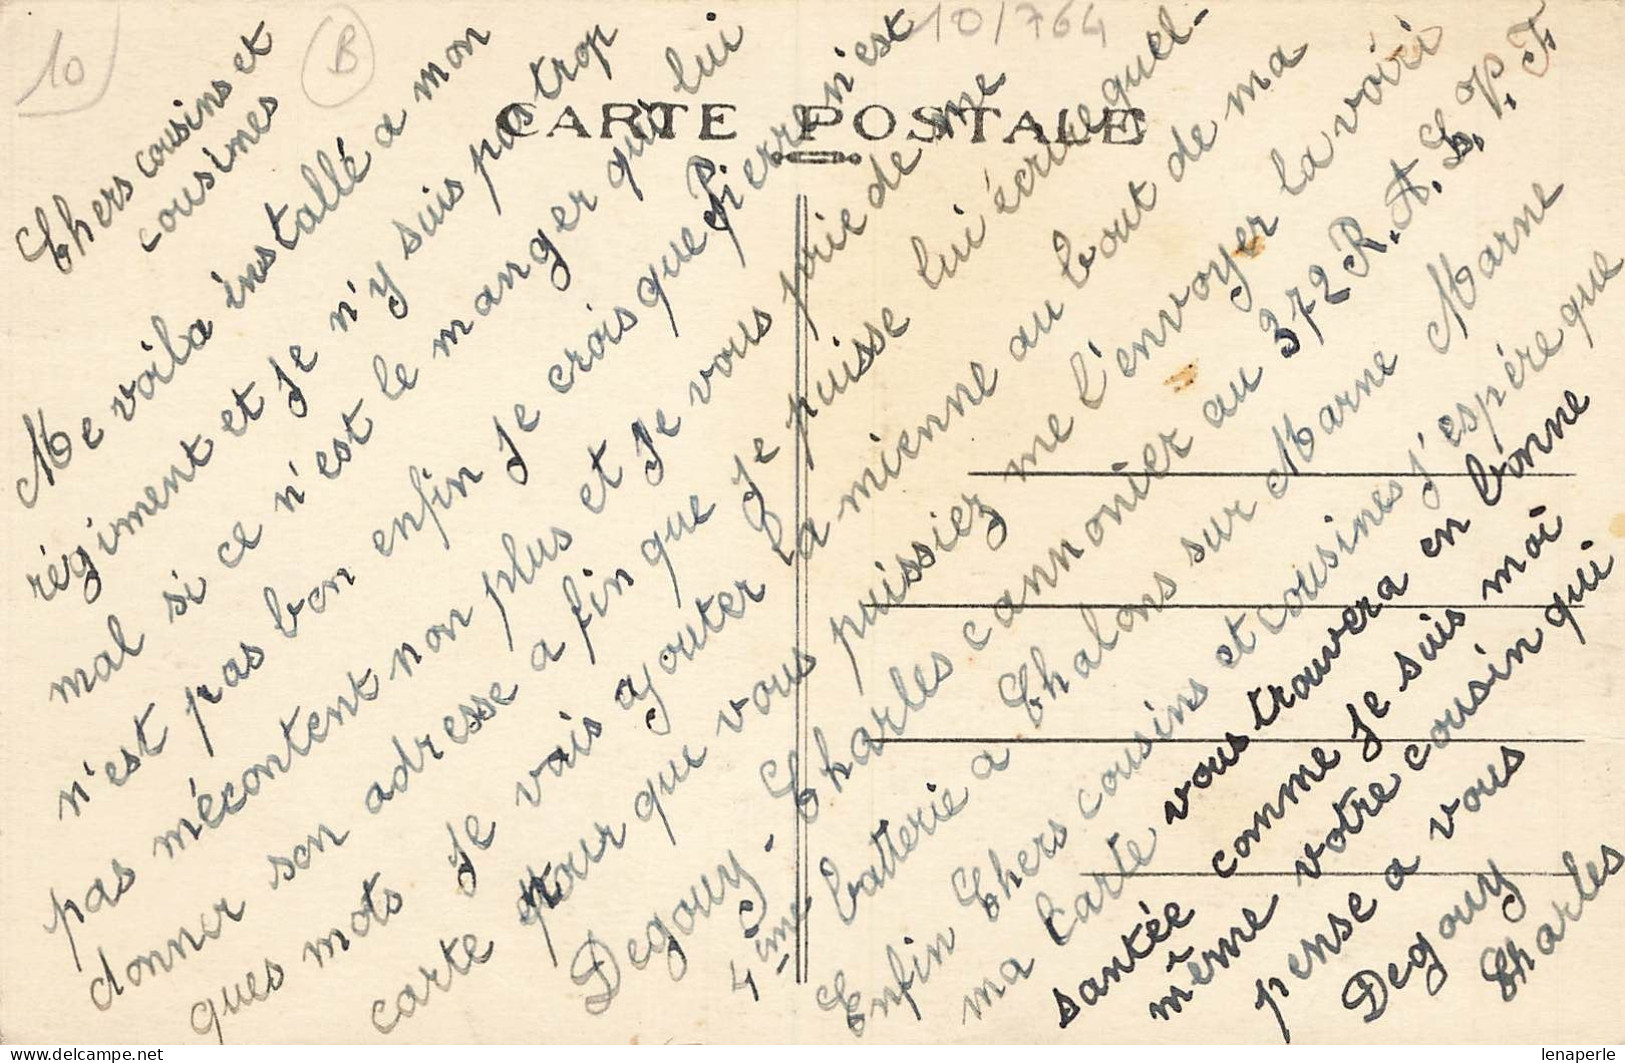 10
B
10/764
CARTE POSTALE
Chers cousins et
cousines
Me voila installé a mon
régiment et Je n'y suis pas trop
mal si ce n'est le manger qui lui
n'est pas bon enfin Je crois que Pierre n'est
pas mécontent non plus et Je vous prie de me
donner son adresse a fin que Je puisse lui écrire quel-
ques mots Je vais ajouter la mienne au bout de ma
carte pour que vous puissiez me l'envoyer la voiri
Degouy - Charles cannonier au 372 R.A.L.V.F
4ème batterie a Chalons sur Marne Marne
Enfin Chers cousins et cousines J'espére que
ma Carte vous trouvera en bonne
santée comme Je suis moi
même votre cousin qui
pense a vous
Degouy
Charles
lenaperle